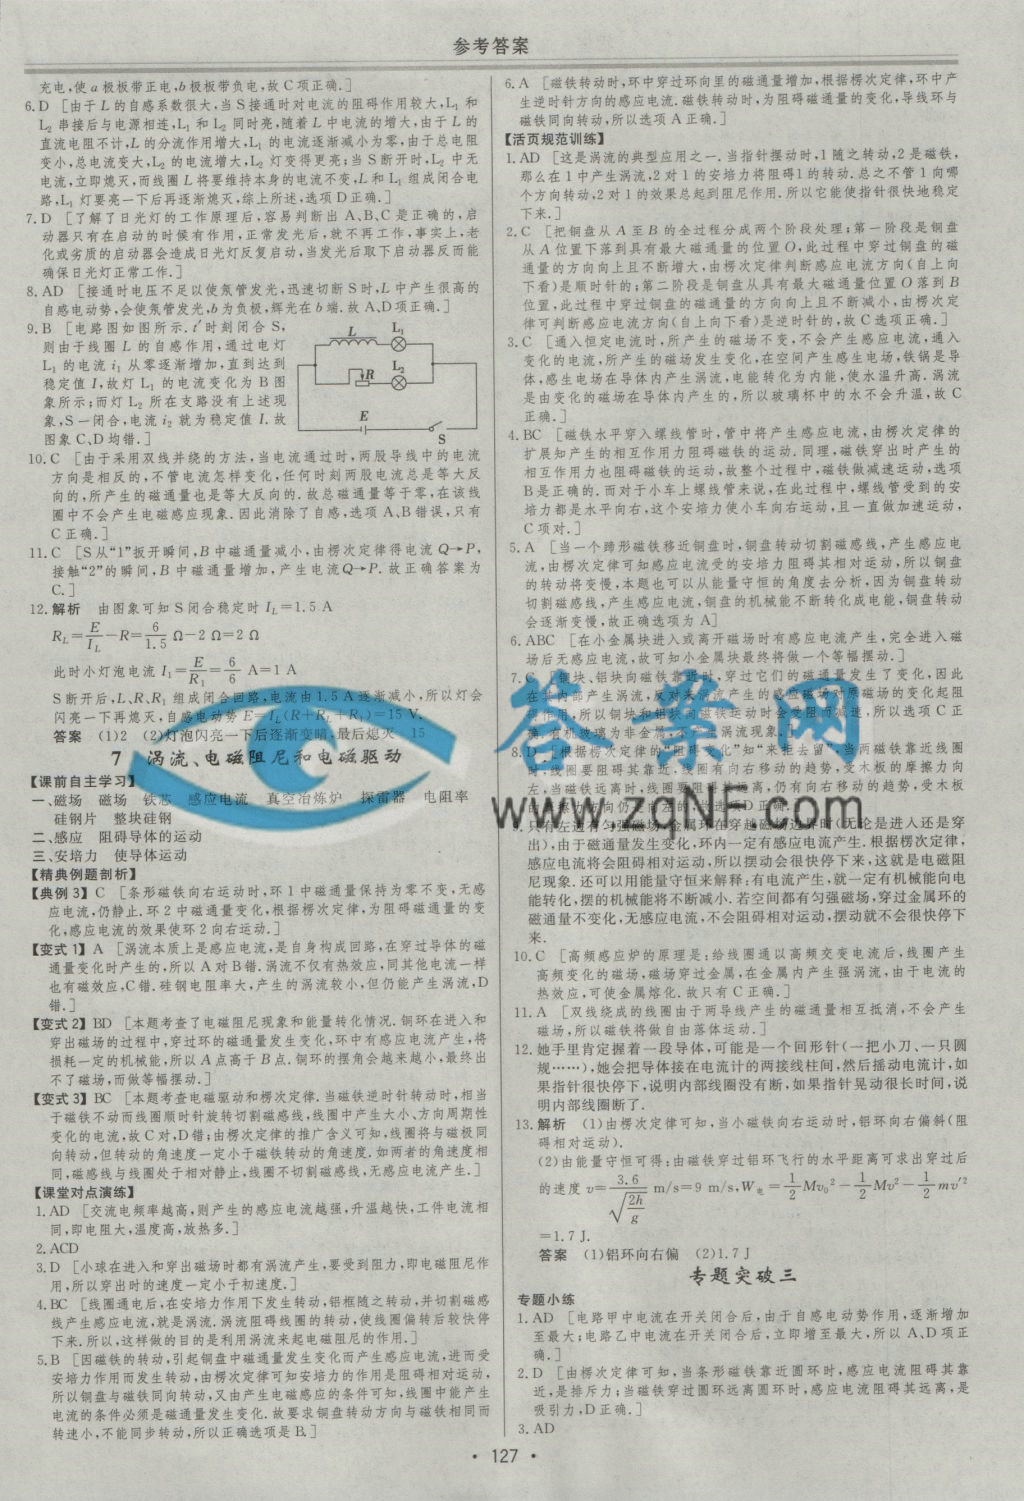 参考答案
充电,使a极板带正电,b极板带负电,故C项正确.]
6.D [由于L的自感系数很大,当S接通时对电流的阻碍作用较大,L₁和
L₂串接后与电源相连,L₁和L₂同时亮,随着L中电流的增大,由于L的
直流电阻不计,L的分流作用增大,L₁的电流逐渐减小为零,由于总电阻
变小,总电流变大,L₂的电流增大,L₂灯变得更亮;当S断开时,L₂中无
电流,立即熄灭,而线圈L将要维持本身的电流不变,L和L₁组成闭合电
路,L₁灯要亮一下后再逐渐熄灭,综上所述,选项D正确.]
7.D [了解了日光灯的工作原理后,容易判断出A、B、C是正确的,启
动器只有在启动的时候有作用,正常发光后,就不再工作,事实上,老
化或劣质的启动器会造成日光灯反复启动,当发光后取下启动器反而能
确保日光灯正常工作.]
8.AD [接通时电压不足以使氖管发光,迅速切断S时,L中产生很高的
自感电动势,会使氖管发光,b为负极,辉光在b端.故A、D项正确.]
9.B [电路图如图所示.t′时刻闭合S,
则由于线圈L的自感作用,通过电灯
L₁的电流i₁从零逐渐增加,直到达到
稳定值I,故灯L₁的电流变化为B图
象所示;而灯L₂所在支路没有上述现
象,S一闭合,电流i₂就为稳定值I.故
图象C、D均错.]
L L₁
R L₂
E
S
10.C [由于采用双线并绕的方法,当电流通过时,两股导线中的电流
方向是相反的,不管电流怎样变化,任何时刻两股电流总是等大反
向的,所产生的磁通量也是等大反向的.故总磁通量等于零,在该线
圈中不会产生电磁感应现象.因此消除了自感,选项A、B错误,只有
C正确.]
11.C [S从“1”扳开瞬间,B中磁通量减小,由楞次定律得电流Q→P,
接触“2”的瞬间,B中磁通量增加,产生电流Q→P.故正确答案为
C.]
12.解析 由图象可知S闭合稳定时I_L=1.5 A
R_L=E/I_L−R=6/1.5 Ω−2 Ω=2 Ω
此时小灯泡电流I₁=E/R₁=6/6 A=1 A
S断开后,L、R、R₁组成闭合回路,电流由1.5 A逐渐减小,所以灯会
闪亮一下再熄灭,自感电动势E=I_L(R+R_L+R₁)=15 V.
答案 (1)2 (2)灯泡闪亮一下后逐渐变暗,最后熄灭 15
7 涡流、电磁阻尼和电磁驱动
【课前自主学习】
一、磁场 磁场 铁芯 感应电流 真空冶炼炉 探雷器 电阻率
硅钢片 整块硅钢
二、感应 阻碍导体的运动
三、安培力 使导体运动
【精典例题剖析】
【典例3】C [条形磁铁向右运动时,环1中磁通量保持为零不变,无感
应电流,仍静止.环2中磁通量变化,根据楞次定律,为阻碍磁通量的变
化,感应电流的效果使环2向右运动.]
【变式1】A [涡流本质上是感应电流,是自身构成回路,在穿过导体的磁
通量变化时产生的,所以A对B错.涡流不仅有热效应,同其他电流一样
也有磁效应,C错.硅钢电阻率大,产生的涡流较小,但仍能产生涡流,D
错.]
【变式2】BD [本题考查了电磁阻尼现象和能量转化情况.铜环在进入和
穿出磁场的过程中,穿过环的磁通量发生变化,环中有感应电流产生,将
损耗一定的机械能,所以A点高于B点.铜环的摆角会越来越小,最终出
不了磁场,而做等幅摆动.]
【变式3】BC [本题考查电磁驱动和楞次定律.当磁铁逆时针转动时,相当
于磁铁不动而线圈顺时针旋转切割磁感线,线圈中产生大小、方向周期性
变化的电流,故C对,D错;由楞次定律的推广含义可知,线圈将与磁极同
向转动,但转动的角速度一定小于磁铁转动的角速度.如两者的角速度相
同,磁感线与线圈处于相对静止,线圈不切割磁感线,无感应电流产生.]
【课堂对点演练】
1.AD [交流电频率越高,则产生的感应电流越强,升温越快,工件电流相
同,即电阻大,温度高,放热多.]
2.ACD
3.D [小球在进入和穿出磁场时都有涡流产生,要受到阻力,即电磁阻尼作
用,所以穿出时的速度一定小于初速度.]
4.BC [线圈通电后,在安培力作用下发生转动,铝框随之转动,并切割磁感
线产生感应电流,就是涡流.涡流阻碍线圈的转动,使线圈偏转后较快停
下来.所以,这样做的目的是利用涡流来起电磁阻尼的作用.]
5.B [因磁铁的转动,引起铜盘中磁通量发生变化而产生感应电流,进而受
安培力作用而发生转动,由楞次定律可知安培力的作用是阻碍相对运动,
所以铜盘与磁铁同向转动,又由产生电磁感应的条件可知,线圈中能产生
电流的条件必须是磁通量发生变化.故要求铜盘转动方向与磁铁相同而
转速小,不能同步转动,所以正确选项是B.]
6.A [磁铁转动时,环中穿过环向里的磁通量增加,根据楞次定律,环中产
生逆时针方向的感应电流.磁铁转动时,为阻碍磁通量的变化,导线环与
磁铁同向转动,所以选项A正确.]
【活页规范训练】
1.AD [这是涡流的典型应用之一.当指针摆动时,1随之转动,2是磁铁,
那么在1中产生涡流,2对1的安培力将阻碍1的转动.总之不管1向哪
个方向转动,2对1的效果总起到阻尼作用.所以它能使指针很快地稳定
下来.]
2.C [把铜盘从A至B的全过程分成两个阶段处理:第一阶段是铜盘
从A位置下落到具有最大磁通量的位置O,此过程中穿过铜盘的磁
通量的方向向上且不断增大,由楞次定律判断感应电流方向(自上向
下看)是顺时针的;第二阶段是铜盘从具有最大磁通量位置O落到B
位置,此过程中穿过铜盘的磁通量的方向向上且不断减小,由楞次定
律可判断感应电流方向(自上向下看)是逆时针的,故C选项正确.]
3.C [通入恒定电流时,所产生的磁场不变,不会产生感应电流,通入
变化的电流,所产生的磁场发生变化,在空间产生感生电场,铁锅是导
体,感生电场在导体内产生涡流,电能转化为内能,使水温升高.涡流
是由变化的磁场在导体内产生的,所以玻璃杯中的水不会升温,故C
正确.]
4.BC [磁铁水平穿入螺线管时,管中将产生感应电流,由楞次定律的
扩展知产生的相互作用力阻碍磁铁的运动.同理,磁铁穿出时产生的
相互作用力也阻碍磁铁的运动,故整个过程中,磁铁做减速运动,选项
B是正确的.而对于小车上螺线管来说,在此过程中,螺线管受到的安
培力都是水平向右,这个安培力使小车向右运动,且一直做加速运动,
C项对.]
5.A [当一个蹄形磁铁移近铜盘时,铜盘转动切割磁感线,产生感应电
流,由楞次定律可知感应电流受的安培力阻碍其相对运动,所以铜盘
的转动将变慢,本题也可以从能量守恒的角度去分析,因为铜盘转动
切割磁感线,产生感应电流,铜盘的机械能不断转化成电能,铜盘转动
会逐渐变慢,故正确选项为A]
6.ABC [在小金属块进入或离开磁场时有感应电流产生,完全进入磁
场后无感应电流,故可知小金属块最终将做一个等幅摆动.]
7.C [铜块、铝块向磁铁靠近时,穿过它们的磁通量发生了变化,因此
在其内部产生涡流,反对来涡流产生的感应磁场对原磁场的变化起阻
碍作用,所以铜块和铝块向磁铁运动时会受阻而减速,所以选项C正
确.有机玻璃为非金属,不产生涡流现象.]
8.D [根据楞次定律的“阻碍变化”知“来拒去留”,当两磁铁靠近线圈
时,线圈要阻碍其靠近,线圈有向右移动的趋势,受木板的摩擦力向
左,当磁铁远离时,线圈要阻碍其远离,仍有向右移动的趋势,受木板
的摩擦力方向仍是向左的,故选项D正确.]
9.只有左边有匀强磁场,金属环在穿越磁场边界时(无论是进入还是穿
出),由于磁通量发生变化,环内一定有感应电流产生.根据楞次定律,
感应电流将会阻碍相对运动,所以摆动会很快停下来,这就是电磁阻
尼现象.还可以用能量守恒来解释:有电流产生,就一定有机械能向电
能转化,摆的机械能将不断减小.若空间都有匀强磁场,穿过金属环的
磁通量不变化,无感应电流,不会阻碍相对运动,摆动就不会很快停下
来.
10.C [高频感应炉的原理是:给线圈通以高频交变电流后,线圈产生
高频变化的磁场,磁场穿过金属,在金属内产生强涡流,由于电流的
热效应,可使金属熔化.故只有C正确.]
11.A [双线绕成的线圈由于两导线产生的磁通量相互抵消,不会产生
磁场,所以磁铁将做自由落体运动.]
12.她手里肯定握着一段导体,可能是一个回形针(一把小刀、一只圆
规……),她会把导体接在电流计的两接线柱间,然后摇动电流计,如
果指针很快停下,说明内部线圈没有断,如果指针晃动很长时间,说
明内部线圈断了.
13.解析 (1)由楞次定律可知,当小磁铁向右运动时,铝环向右偏斜(阻
碍相对运动).
(2)由能量守恒可得:由磁铁穿过铝环飞行的水平距离可求出穿过后
的速度v=3.6/√(2h/g) m/s=9 m/s,W电=½Mv₀²−½Mv²−½mv′²
=1.7 J.
答案 (1)铝环向右偏 (2)1.7 J
专题突破三
专题小练
1.AD [电路甲中电流在开关闭合后,由于自感电动势作用,逐渐增加
至最大;电路乙中电流在开关闭合后,立即增至最大,所以A、D项正
确.]
2.D [由楞次定律可知,当条形磁铁靠近圆环时,感应电流阻碍其靠
近,是排斥力;当磁铁穿过圆环远离圆环时,感应电流阻碍其远离,是
吸引力,D正确.]
3.AD
答案网
www.zqnf.com
• 127 •